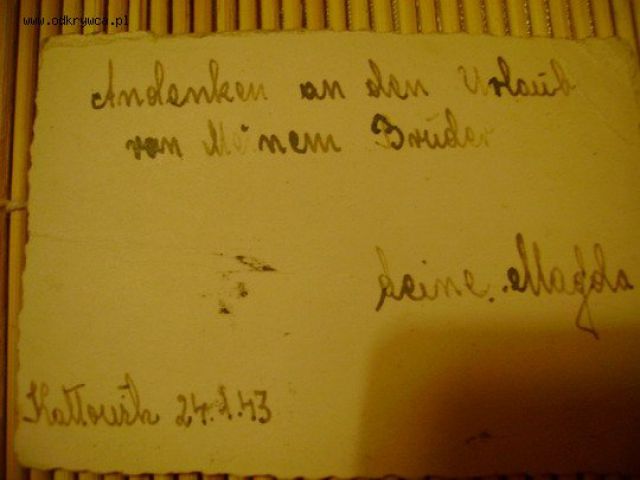 www.odkrywca.pl
Andenken an den Urlaub
von Meinem Bruder
deine. Magda
Kattowitz 24.1.43